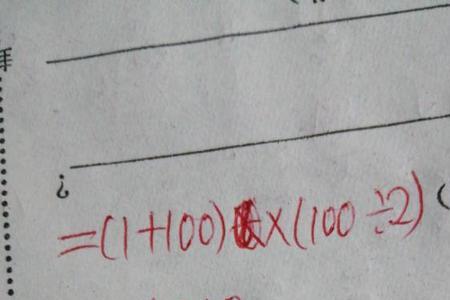 ?
=(1+100)×(100÷2)